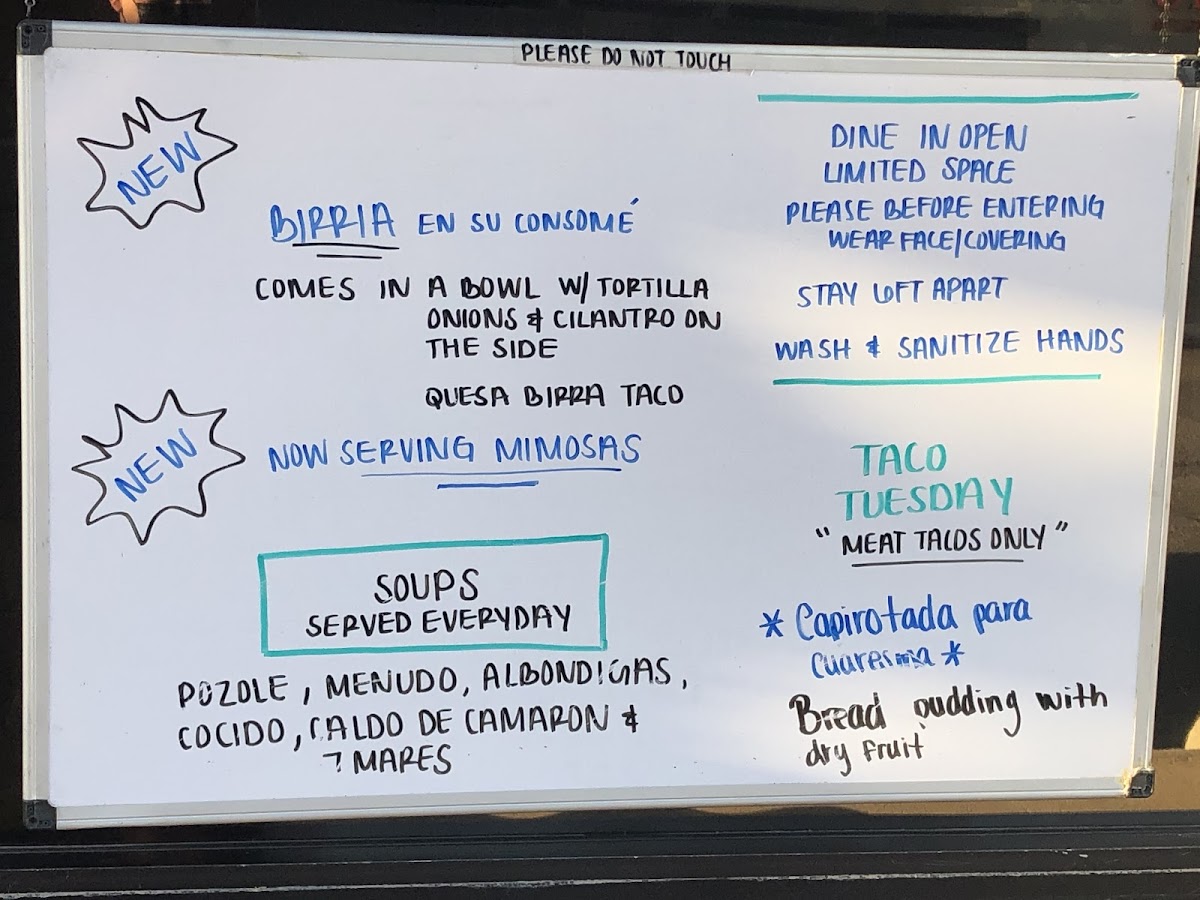 PLEASE DO NOT TOUCH
NEW
BIRRIA EN SU CONSOMÉ
COMES IN A BOWL W/ TORTILLA
ONIONS & CILANTRO ON
THE SIDE
QUESA BIRRA TACO
NEW
NOW SERVING MIMOSAS
SOUPS
SERVED EVERYDAY
POZOLE, MENUDO, ALBONDIGAS,
COCIDO, CALDO DE CAMARON &
7 MARES
DINE IN OPEN
LIMITED SPACE
PLEASE BEFORE ENTERING
WEAR FACE/COVERING
STAY 6FT APART
WASH & SANITIZE HANDS
TACO
TUESDAY
"MEAT TACOS ONLY"
* Capirotada para
cuaresma *
Bread pudding with
dry fruit